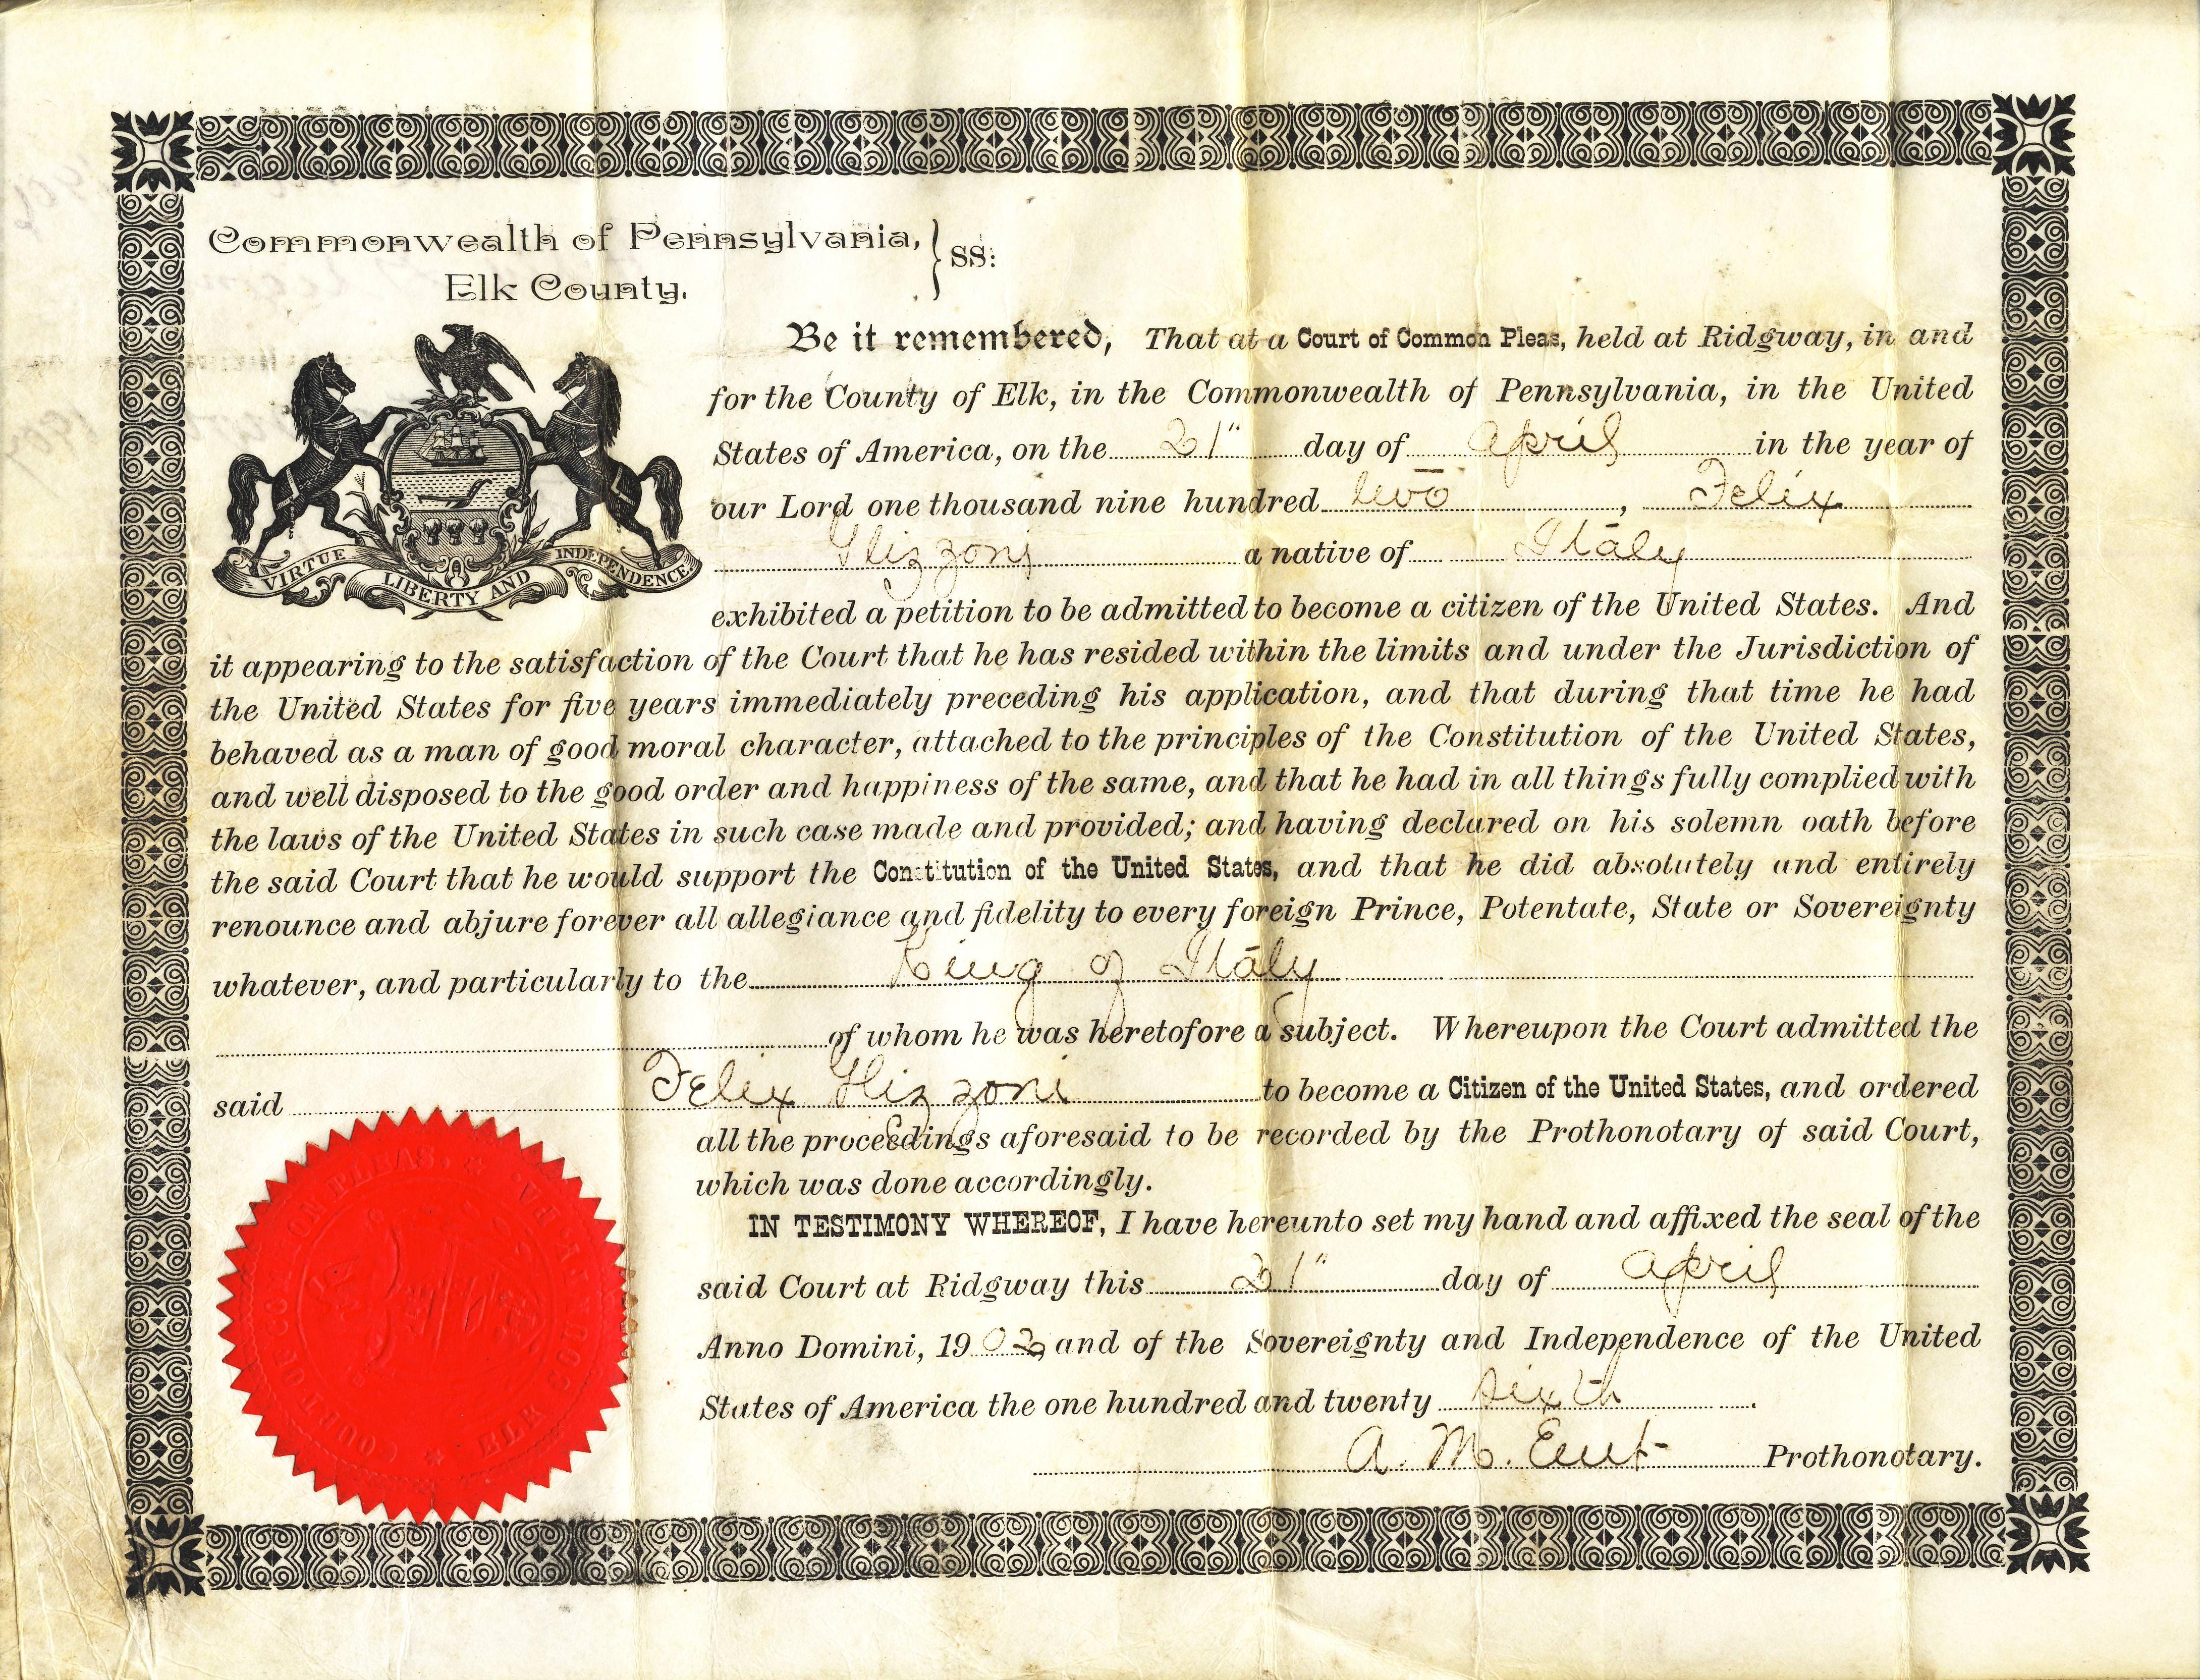 Commonwealth of Pennsylvania, } SS:
Elk County.
Be it remembered, That at a Court of Common Pleas, held at Ridgway, in and
for the County of Elk, in the Commonwealth of Pennsylvania, in the United
States of America, on the 21" day of April in the year of
our Lord one thousand nine hundred two, Felix
a native of Italy
VIRTUE LIBERTY AND INDEPENDENCE
exhibited a petition to be admitted to become a citizen of the United States. And
it appearing to the satisfaction of the Court that he has resided within the limits and under the Jurisdiction of
the United States for five years immediately preceding his application, and that during that time he had
behaved as a man of good moral character, attached to the principles of the Constitution of the United States,
and well disposed to the good order and happiness of the same, and that he had in all things fully complied with
the laws of the United States in such case made and provided; and having declared on his solemn oath before
the said Court that he would support the Constitution of the United States, and that he did absolutely and entirely
renounce and abjure forever all allegiance and fidelity to every foreign Prince, Potentate, State or Sovereignty
whatever, and particularly to the King of Italy
of whom he was heretofore a subject. Whereupon the Court admitted the
said Felix to become a Citizen of the United States, and ordered
all the proceedings aforesaid to be recorded by the Prothonotary of said Court,
which was done accordingly.
IN TESTIMONY WHEREOF, I have hereunto set my hand and affixed the seal of the
said Court at Ridgway this 21" day of April
Anno Domini, 1902, and of the Sovereignty and Independence of the United
States of America the one hundred and twenty sixth.
A. M. Prothonotary.